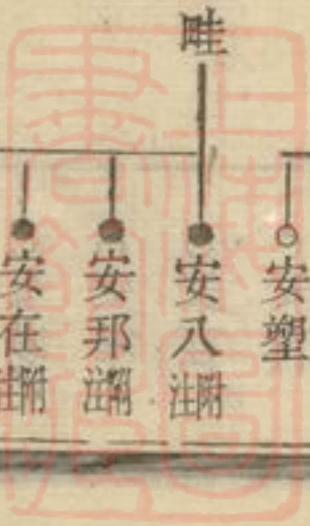 畦
安塑
安八 附注
安邦 附注
安在 附注